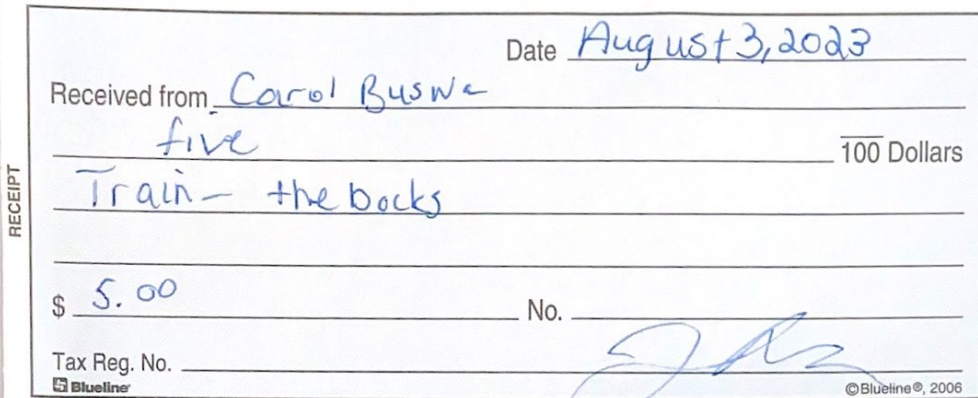 Date August 3, 2023
Received from Carol Buswa
five 100 Dollars
Train - the bocks
$ 5.00 No.
Tax Reg. No.
Blueline
©Blueline®, 2006
RECEIPT